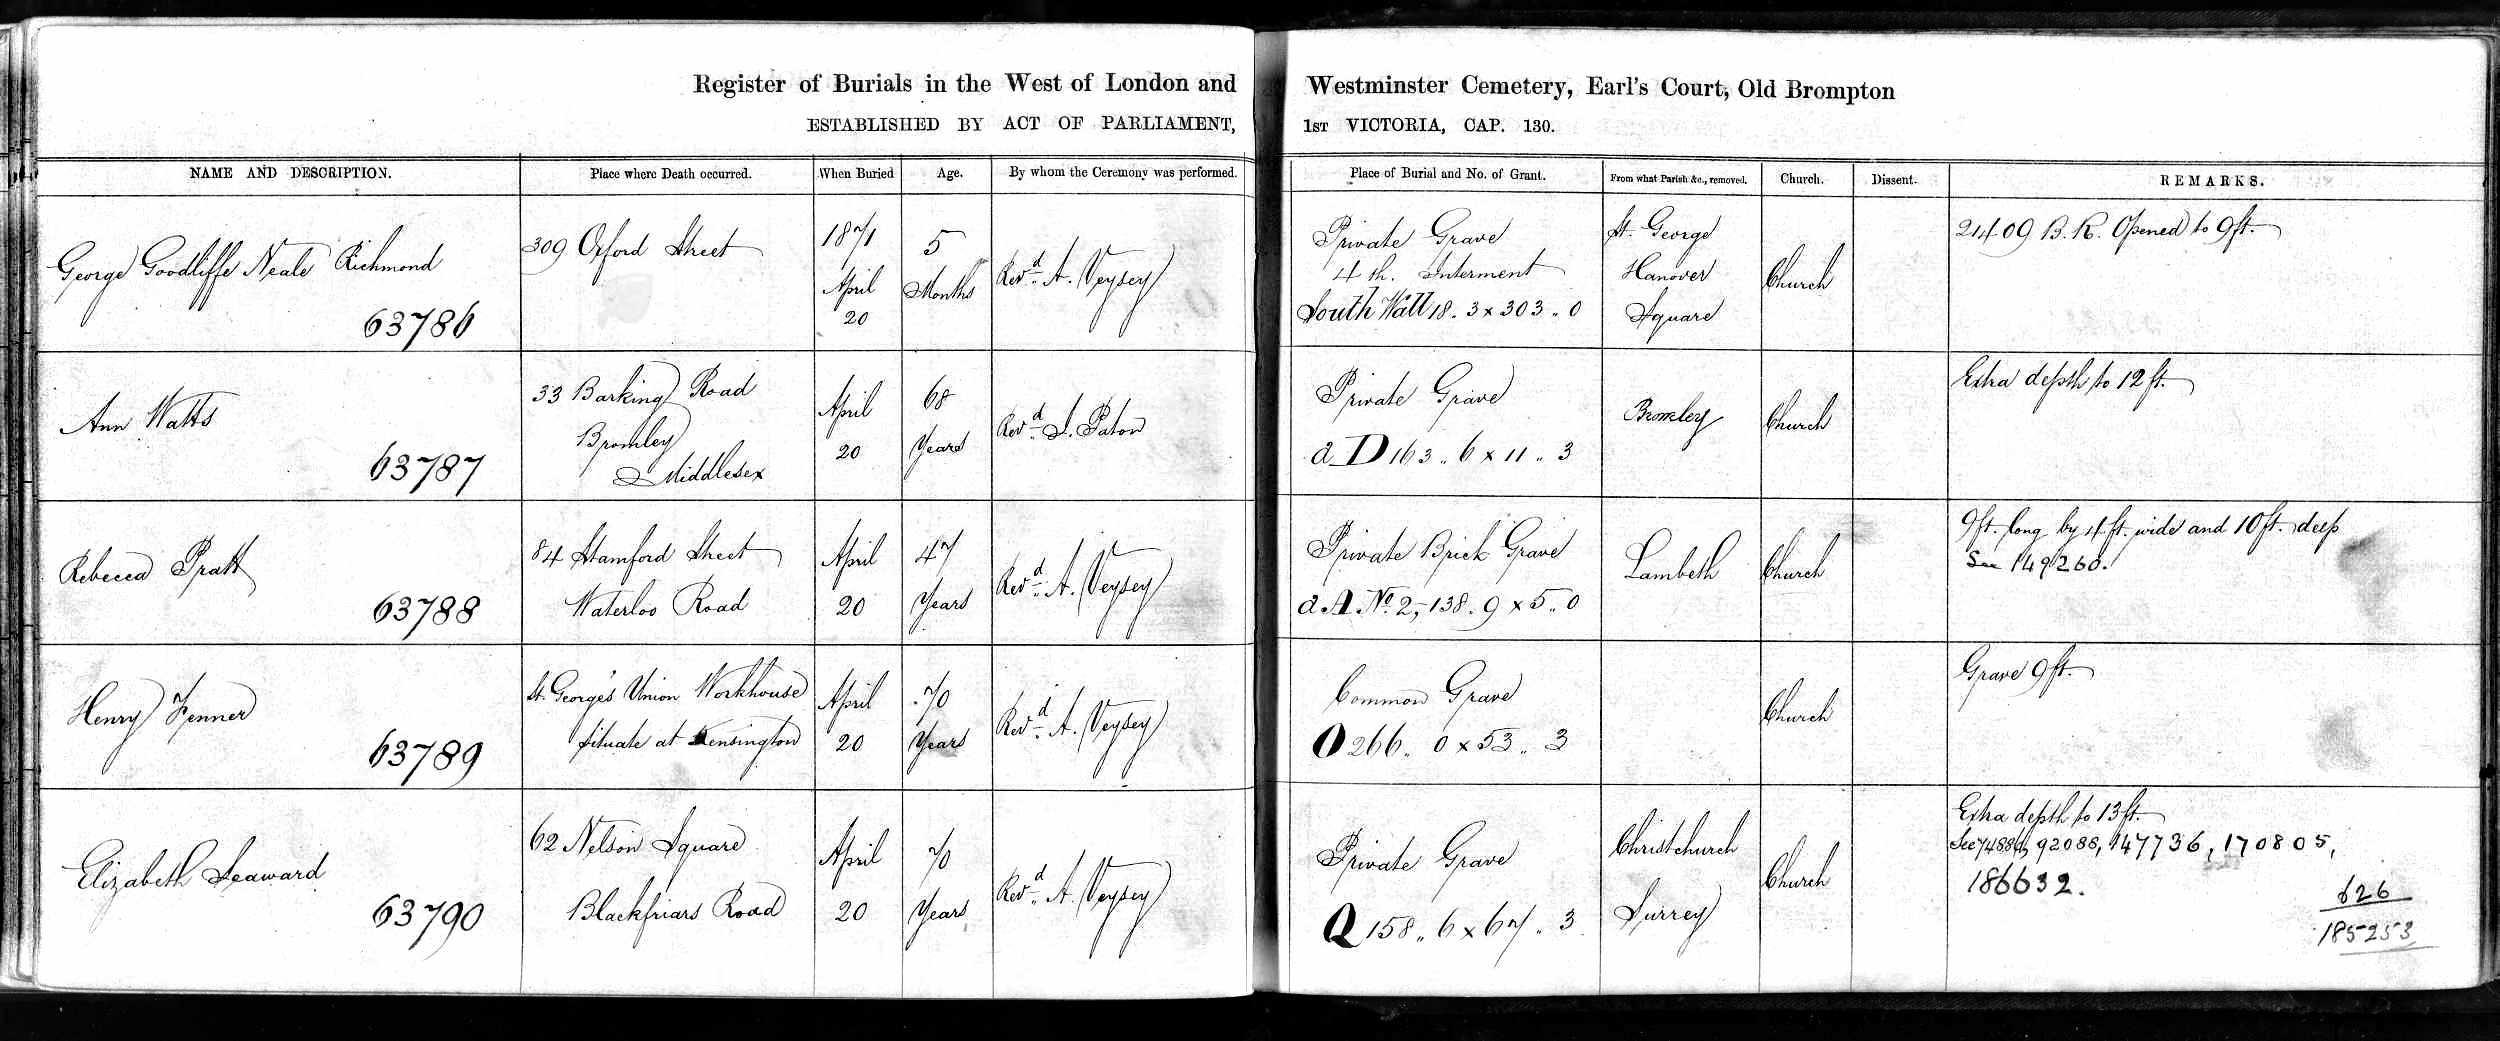 Register of Burials in the West of London and Westminster Cemetery, Earl's Court, Old Brompton
ESTABLISHED BY ACT OF PARLIAMENT, 1ST VICTORIA, CAP. 130.
NAME AND DESCRIPTION. Place where Death occurred. When Buried Age. By whom the Ceremony was performed. Place of Burial and No. of Grant. From what Parish &c., removed. Church. Dissent. REMARKS.
George Goodliffe Neale Richmond
63786
309 Oxford Street
1871
April
20
5
Months
Revd. A. Veysey
Private Grave
4th. Interment
South Wall 18. 3 x 303 .. 0
St. George
Hanover
Square
Church
2409 B. R. Opened to 9ft.
Ann Watts
63787
33 Barking Road
Bromley
Middlesex
April
20
68
Years
Revd. Paton
Private Grave
d D 163 .. 6 x 11 .. 3
Bromley
Church
Extra depth to 12 ft.
Rebecca Pratt
63788
84 Stamford Street
Waterloo Road
April
20
47
Years
Revd. A. Veysey
Private Brick Grave
d A No. 2, 138 . 9 x 5 .. 0
Lambeth
Church
9ft. long by 4 ft. wide and 10ft. deep
See 149260.
Henry Fenner
63789
St. George's Union Workhouse
situate at Kensington
April
20
70
Years
Revd. A. Veysey
Common Grave
O 266 .. 0 x 53 .. 3
Church
Grave 9ft.
Elizabeth Seaward
63790
62 Nelson Square
Blackfriars Road
April
20
70
Years
Revd. A. Veysey
Private Grave
Q 158 .. 6 x 67 .. 3
Christchurch
Surrey
Church
Extra depth to 13ft.
See 92088, 147736, 170805,
186632.
626
185253